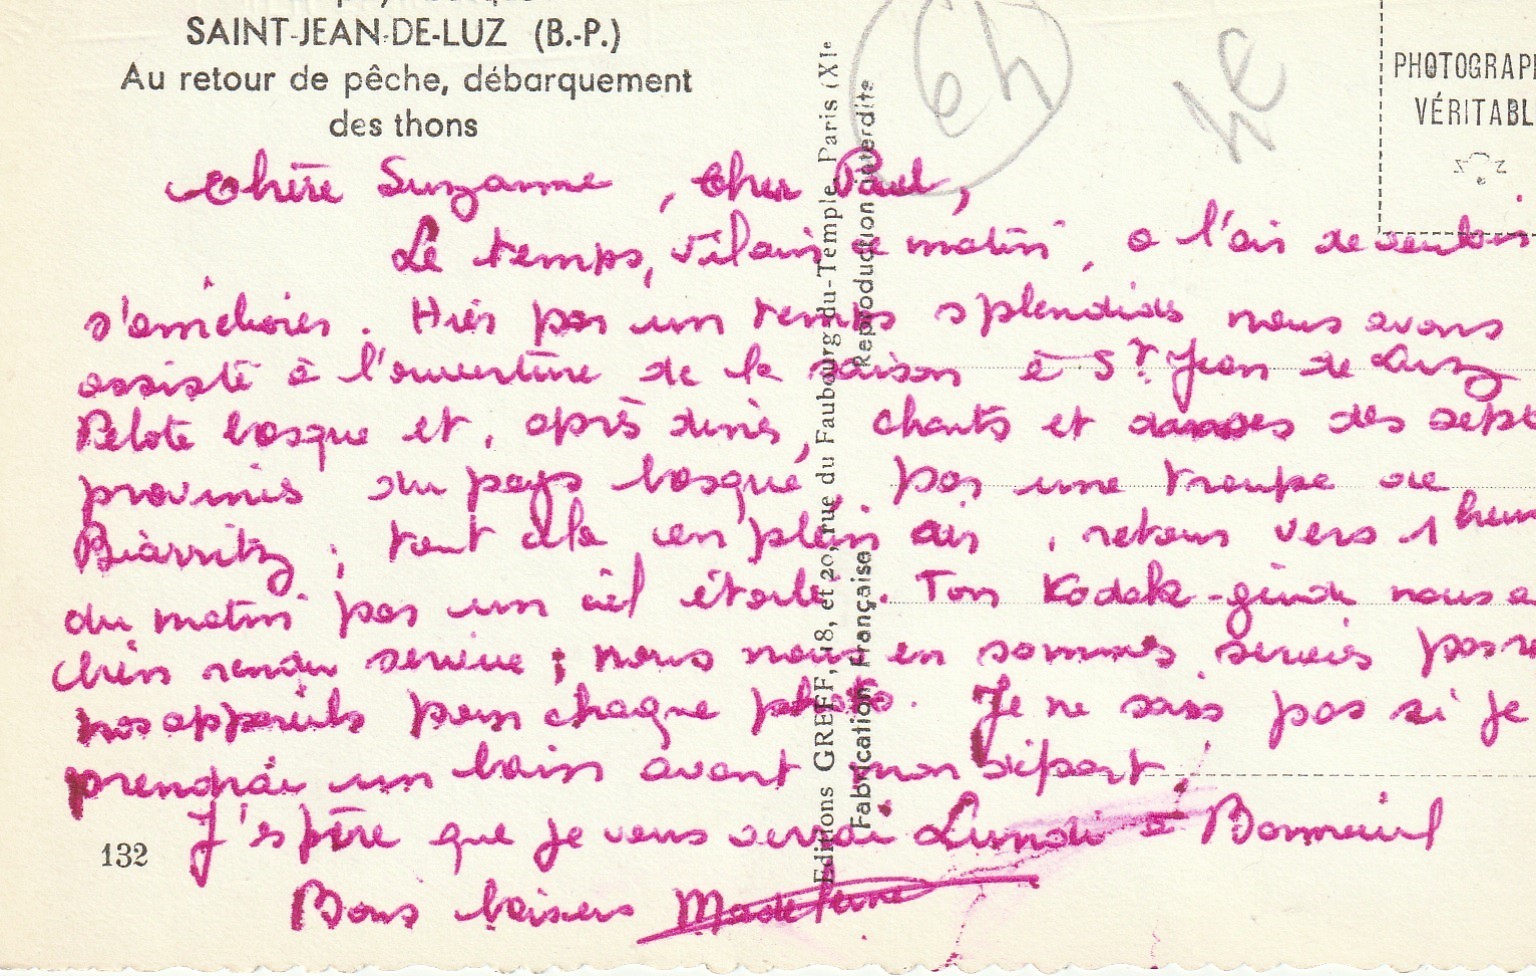 SAINT-JEAN-DE-LUZ (B.-P.)
Au retour de pêche, débarquement
des thons
PHOTOGRAPH
VÉRITABL
Chère Suzanne, Cher Paul,
Le temps, vilain ce matin, a l'air de vouloir
s'améliorer. Hier par un temps splendide nous avons
assisté à l'ouverture de la saison à St Jean de Luz
Pelote basque et, après diner, chants et danses des sept
provinces du pays basque, par une troupe de
Biarritz; tout cela en plein air, retour vers 1 heure
du matin par un ciel étoilé. Ton Kodak-guide nous a
bien rendu service; nous nous en sommes servies pour
nos appareils pour chaque photo. Je ne sais pas si je
prendrai un bain avant mon départ.
J'espère que je vous verrai Lundi à Bonneuil
Bons baisers Madeleine
132
Editions GREFF, 18, et 20, rue du Faubourg-du-Temple, Paris (XIe
Fabrication Française Reproduction interdite